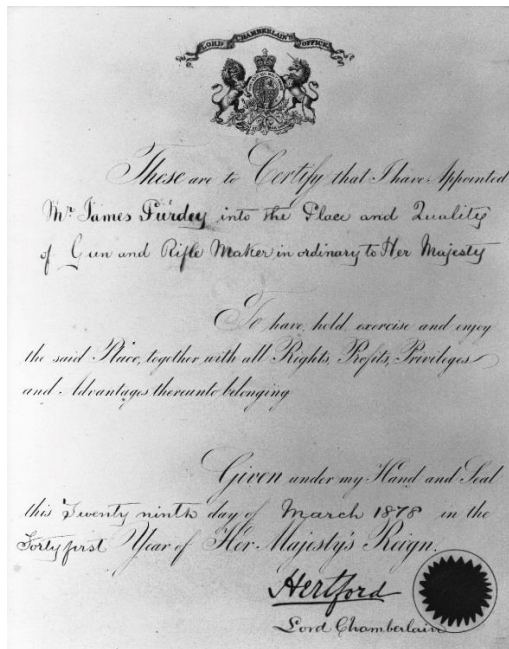 LORD CHAMBERLAIN'S OFFICE
These are to Certify that I have Appointed
Mr. James Purdey into the Place and Quality
of Gun and Rifle Maker in ordinary to Her Majesty
To have, hold, exercise and enjoy
the said Place, together with all Rights, Profits, Privileges
and Advantages thereunto belonging
Given under my Hand and Seal
this Twenty ninth day of March 1878 in the
Forty first Year of Her Majesty's Reign.
Hertford
Lord Chamberlain